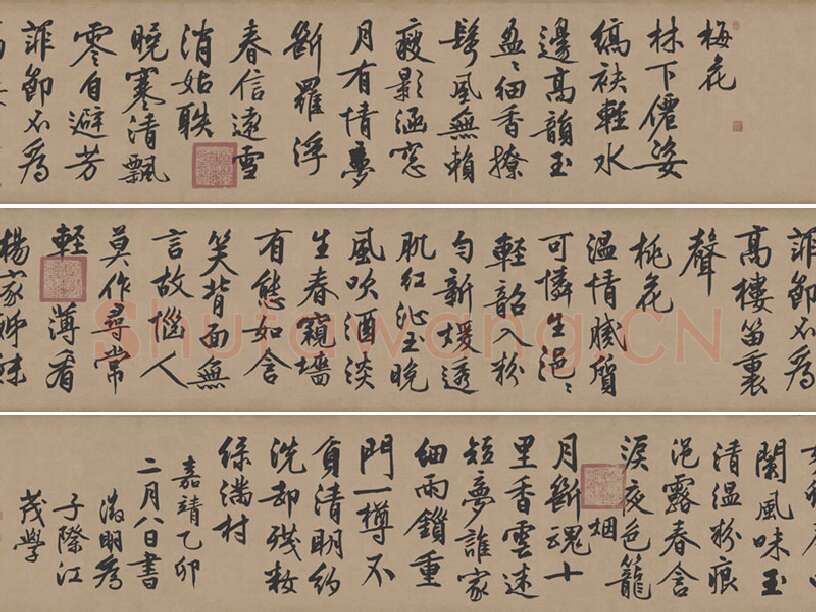 梅花
林下僊姿
縞袂輕水
邊高韻玉
盈〻細香撩
鬢風無賴
瘦影涵窓
月有情夢
斷羅浮
春信遠雪
消姑
曉寒清飄
零自避芳
菲節不為
菲節不為
高樓笛裏
聲
桃花
溫情膩質
可憐生浥〻
輕韶入粉
勻新煖透
肌紅沁玉晚
風吹酒淡
生春窺墻
有態如含
笑背面無
言故惱人
莫作尋常
輕薄看
楊家姊妹
闌風味玉
清溫粉痕
浥露春含
淚夜色籠烟
月斷魂十
里香雲迷
短夢誰家
細雨鎖重
門一樽不
負清明約
洗却殘粧
綠滿村
嘉靖乙卯
二月八日書
徵明為
子際江
茂學
Shufawang.CN